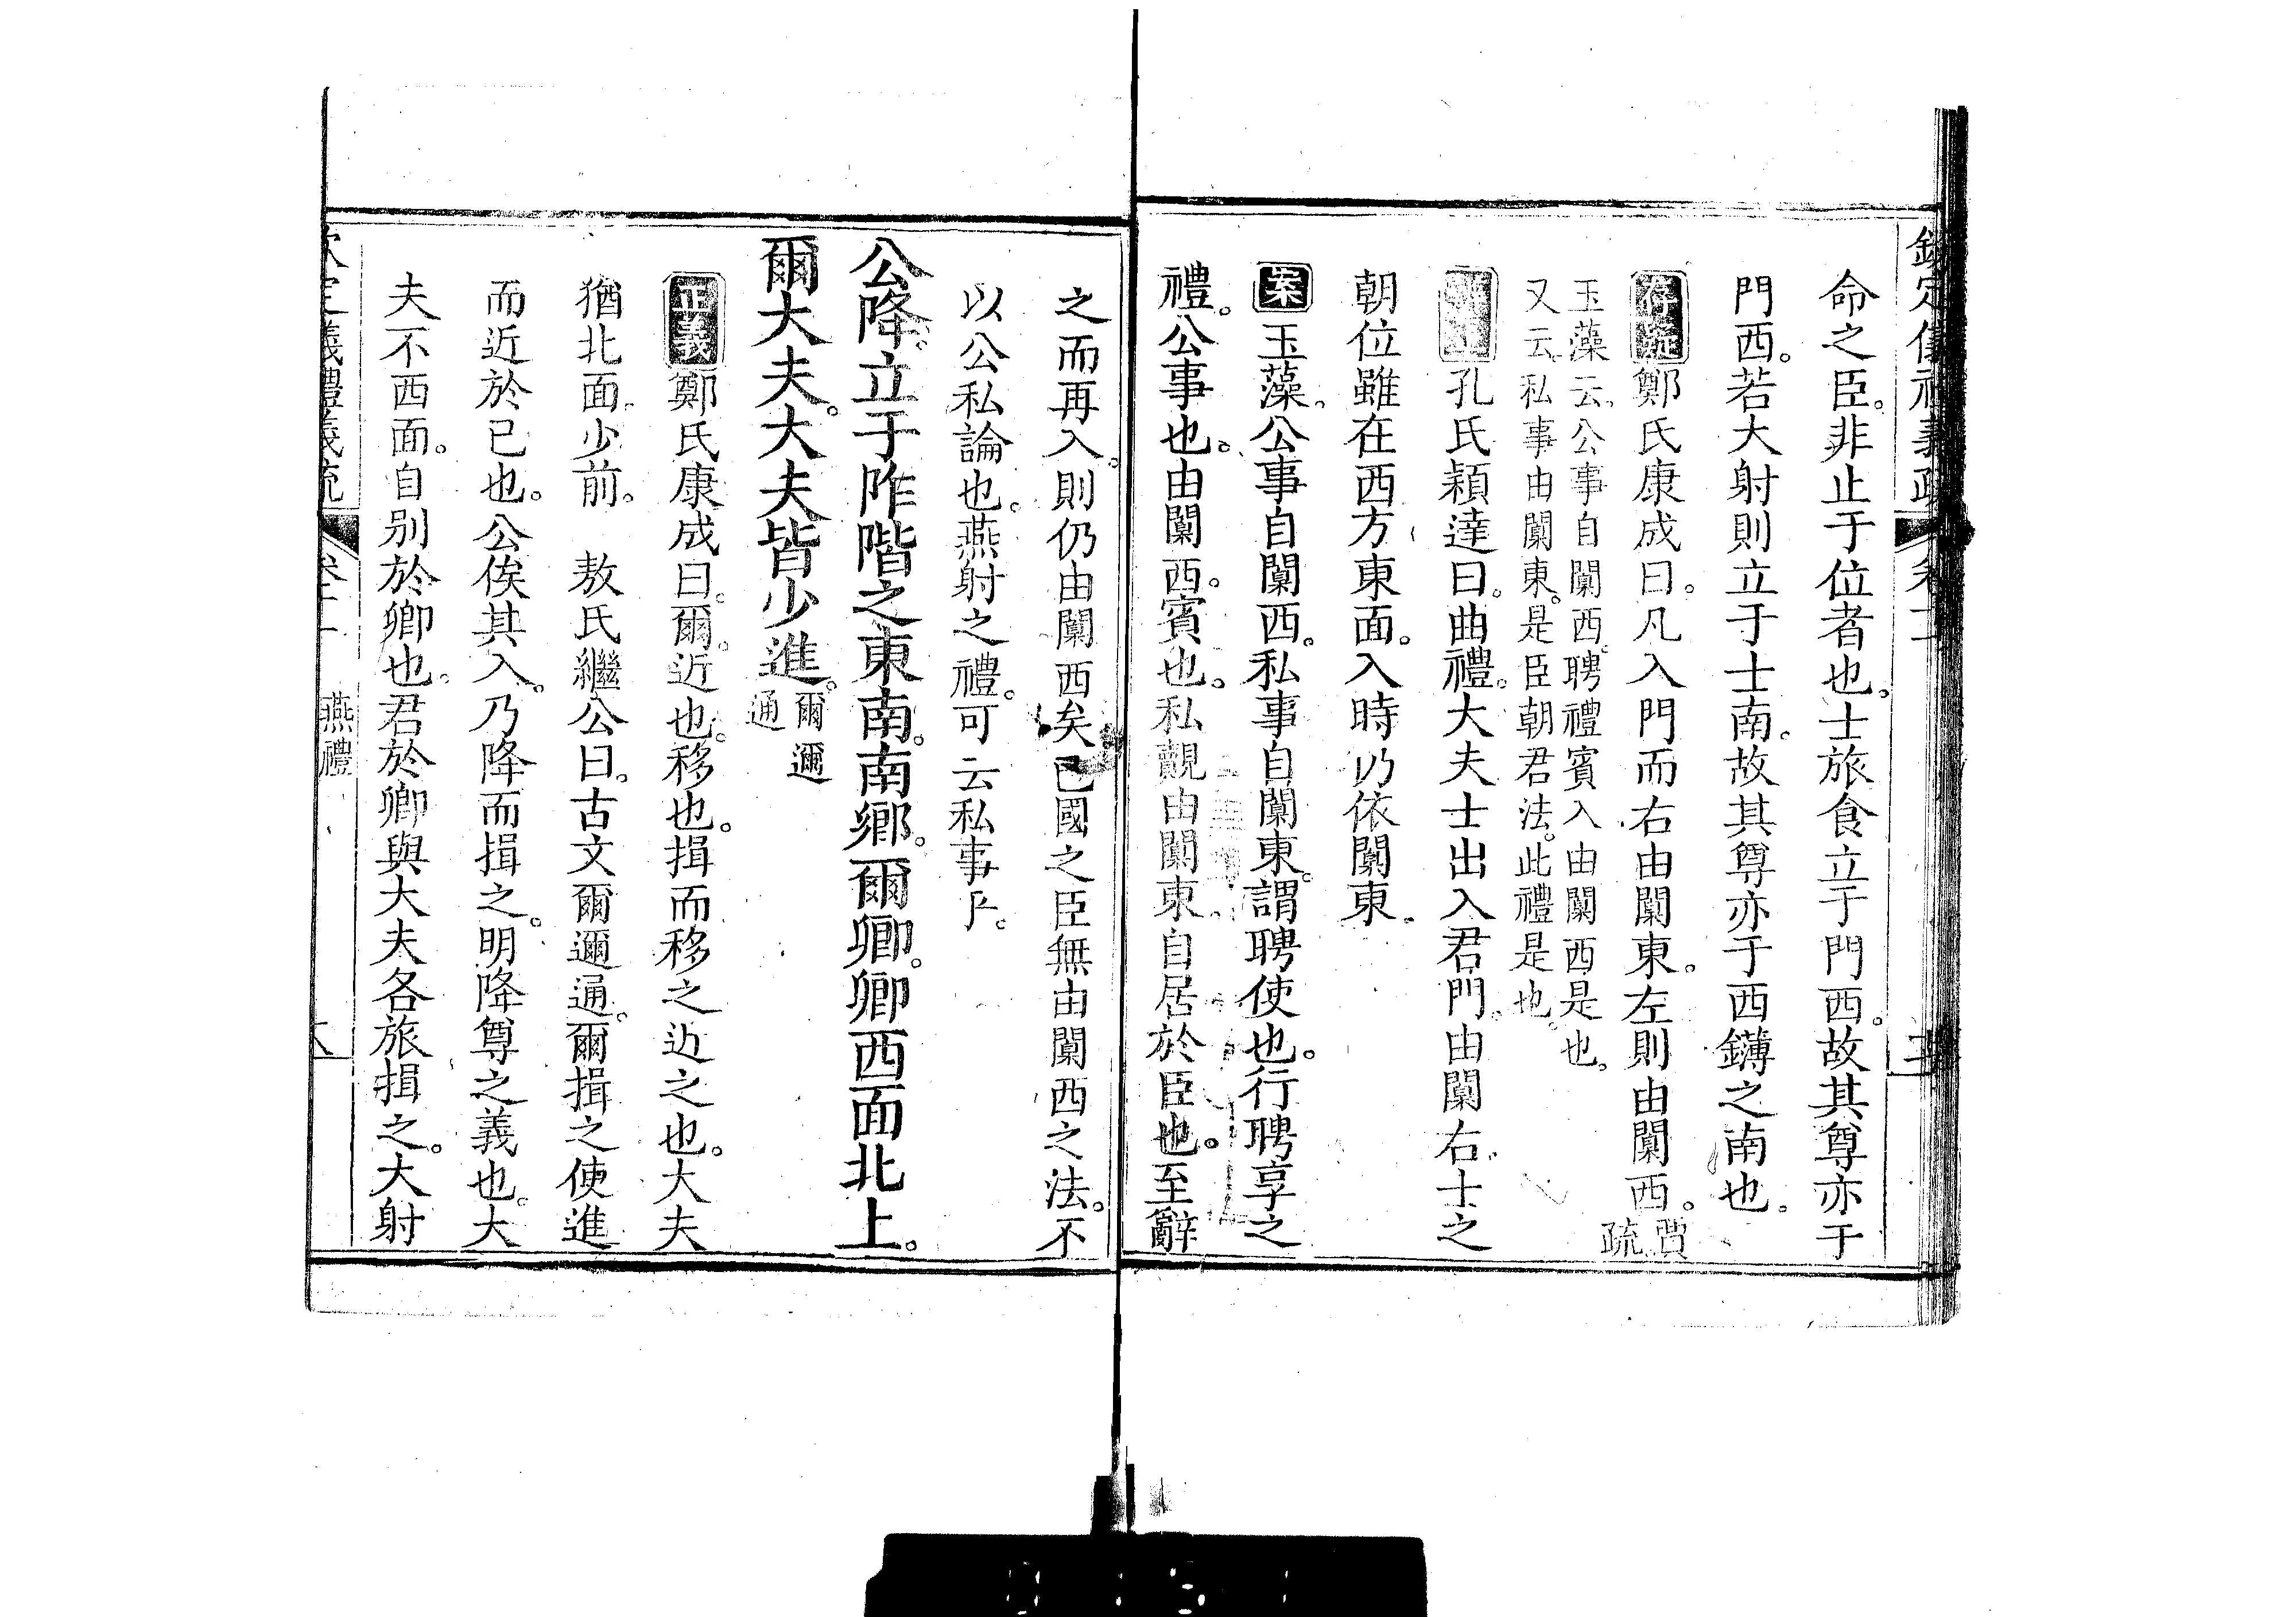 命之臣。非止于位者也。士旅食立于門西。故其尊亦于
門西。若大射則立于士南。故其尊亦于西鑮之南也。
存疑 鄭氏康成曰。凡入門而右由闑東。左則由闑西。賈疏
玉藻云。公事自闑西。聘禮賓入由闑西是也。
又云。私事由闑東。是臣朝君法。此禮是也。
孔氏穎達曰。曲禮。大夫士出入君門。由闑右。士之
朝位雖在西方東面。入時仍依闑東。
案 玉藻。公事自闑西。私事自闑東。謂聘使也。行聘享之
禮。公事也。由闑西。賓也。私覿由闑東。自居於臣也。至辭
之而再入。則仍由闑西矣已國之臣無由闑西之法。不
以公私論也。燕射之禮。可云私事乎。
公降。立于阼階之東南。南鄉。爾卿。卿西面北上。
爾大夫。大夫皆少進。爾邇通
正義 鄭氏康成曰。爾。近也。移也。揖而移之近之也。大夫
猶北面。少前。 敖氏繼公曰。古文爾邇通。爾揖之使進
而近於已也。公俟其入。乃降而揖之。明降尊之義也。大
夫不西面。自别於卿也。君於卿與大夫各旅揖之。大射
燕禮